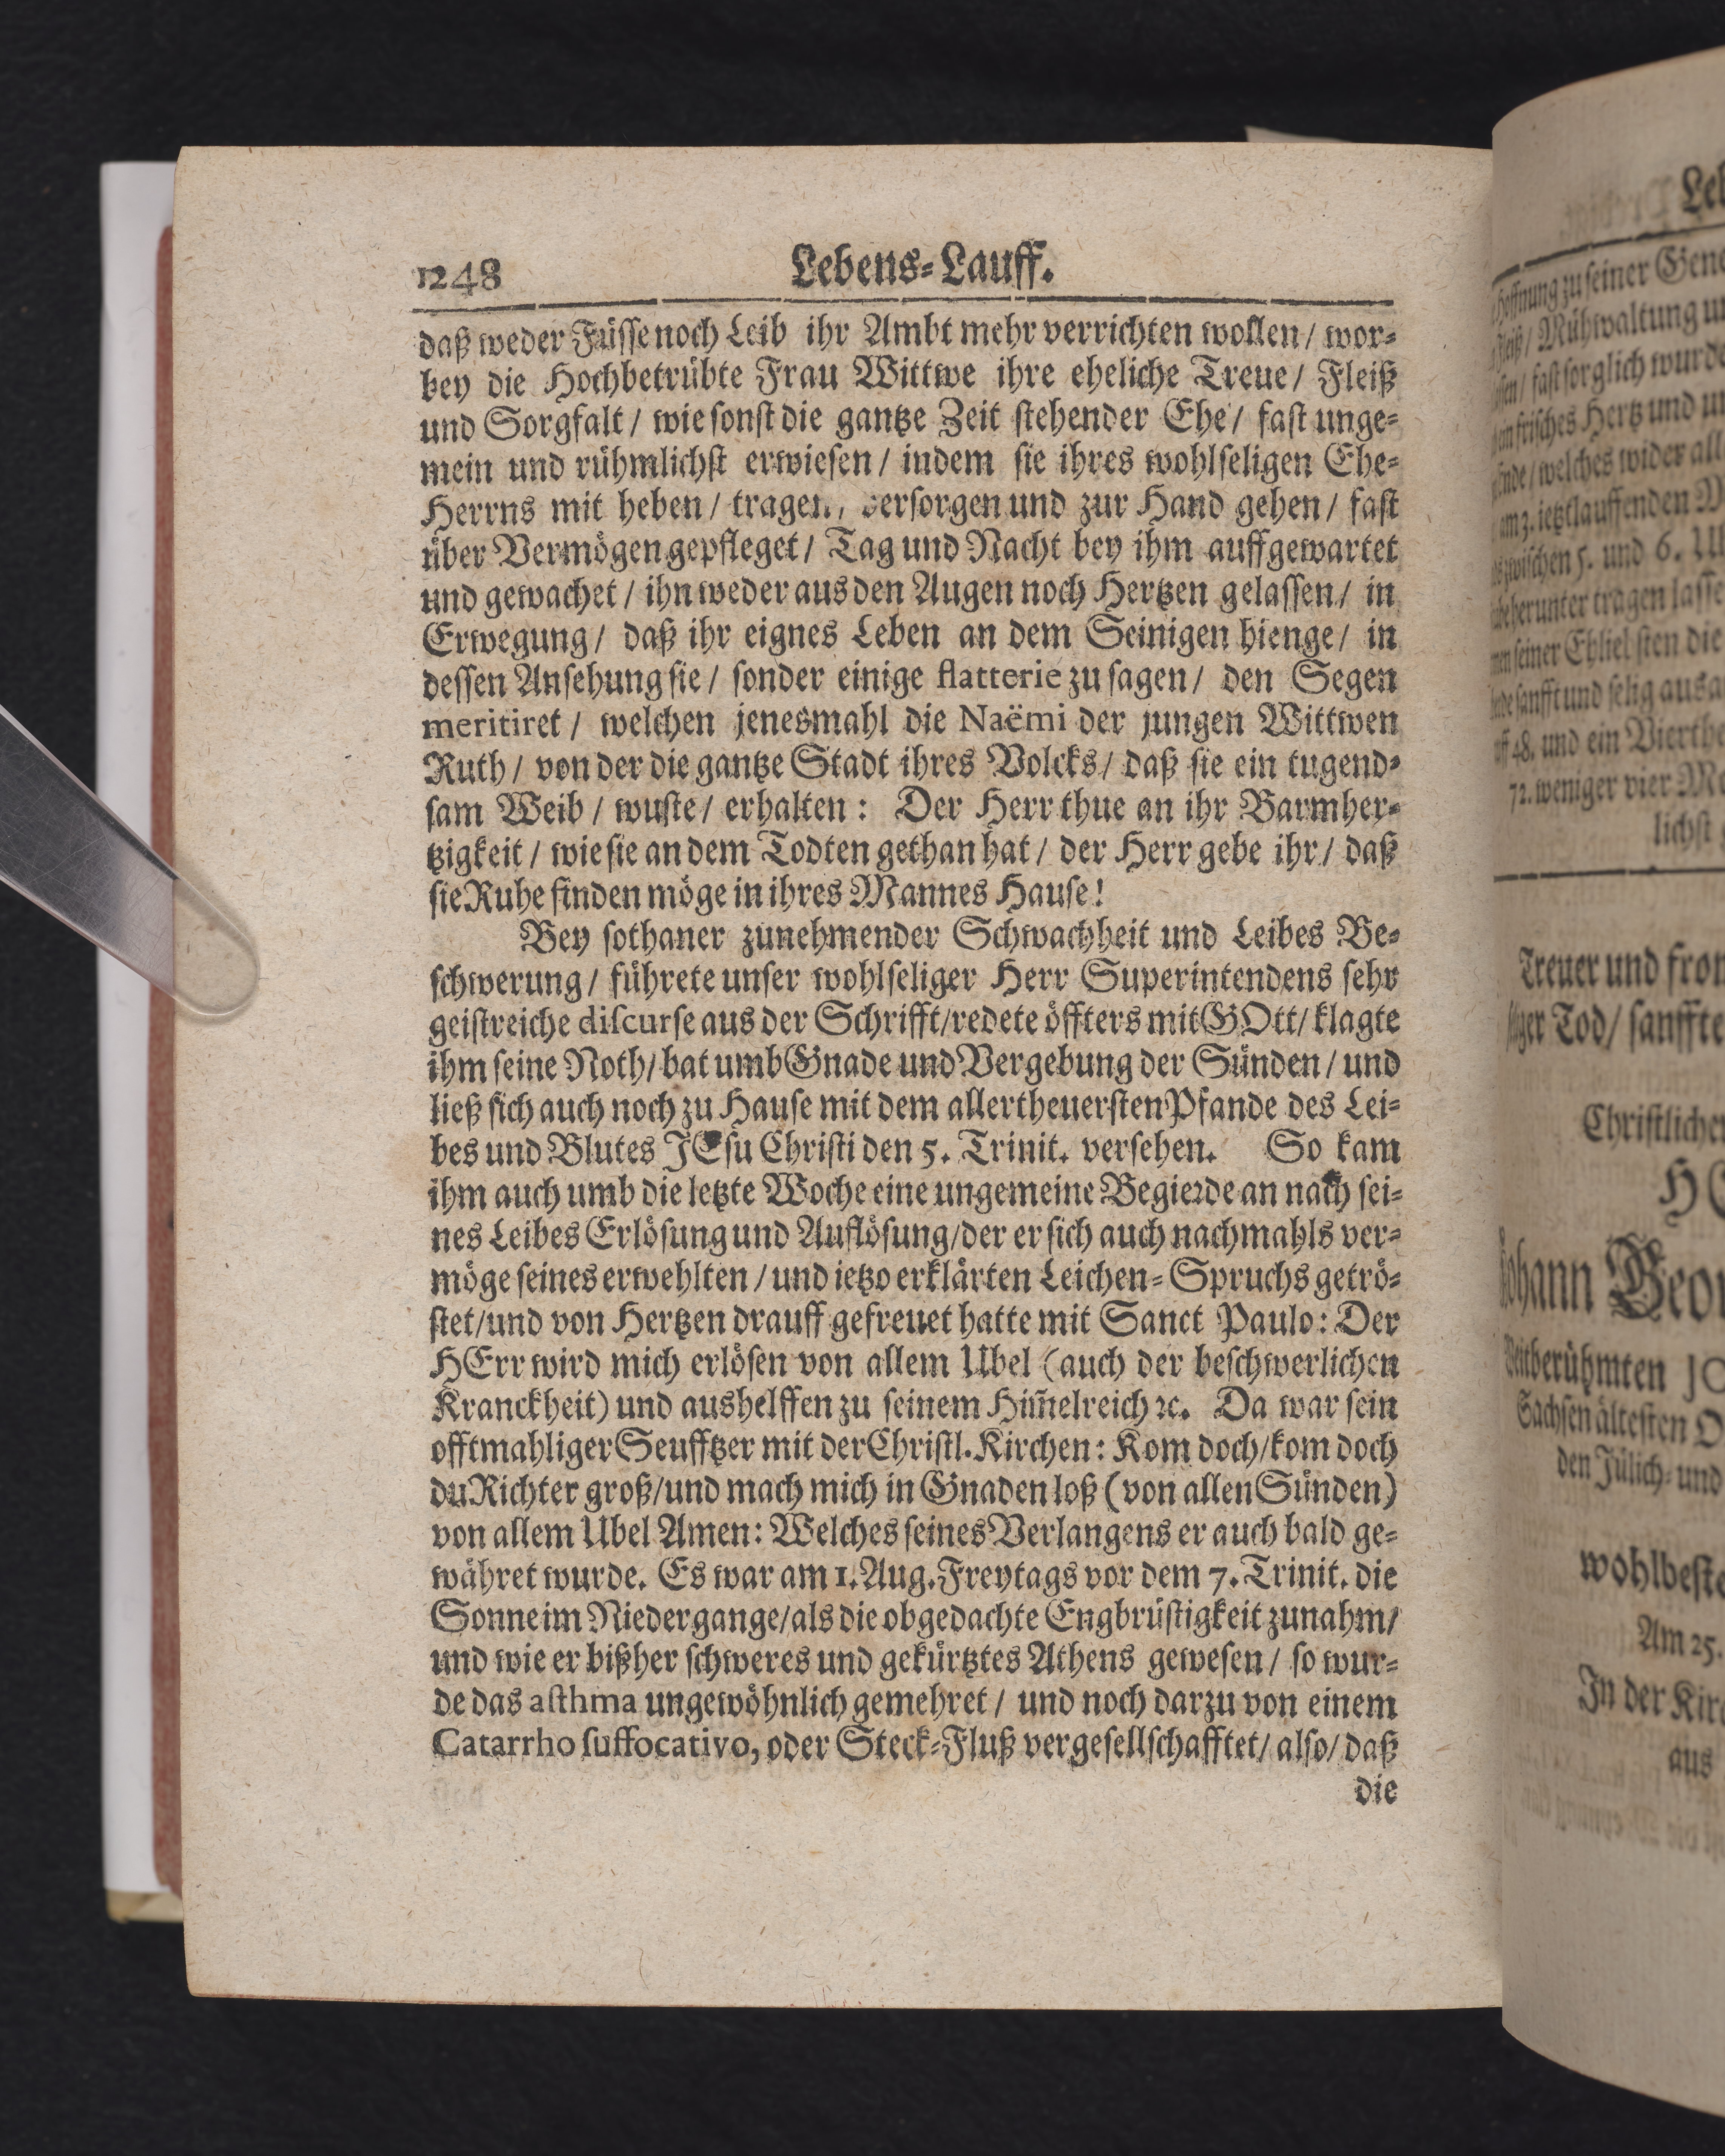 1248 Lebens-Lauff.
daß weder Füsse noch Leib ihr Ambt mehr verrichten wollen / wor-
bey die Hochbetrübte Frau Wittwe ihre eheliche Treue / Fleiß
und Sorgfalt / wie sonst die gantze Zeit stehender Ehe / fast unge-
mein und rühmlichst erwiesen / indem sie ihres wohlseligen Ehe-
Herrns mit heben / tragen, versorgen und zur Hand gehen / fast
über Vermögen gepfleget / Tag und Nacht bey ihm auffgewartet
und gewachet / ihn weder aus den Augen noch Hertzen gelassen / in
Erwegung / daß ihr eignes Leben an dem Seinigen hienge / in
dessen Ansehung sie / sonder einige flatterie zu sagen / den Segen
meritiret / welchen jenesmahl die Naëmi der jungen Wittwen
Ruth / von der die gantze Stadt ihres Volcks / daß sie ein tugend-
sam Weib / wuste / erhalten : Der Herr thue an ihr Barmher-
tzigkeit / wie sie an dem Todten gethan hat / der Herr gebe ihr / daß
sie Ruhe finden möge in ihres Mannes Hause !
Bey sothaner zunehmender Schwachheit und Leibes Be-
schwerung / führete unser wohlseliger Herr Superintendens sehr
geistreiche discurse aus der Schrifft / redete öffters mit GOtt / klagte
ihm seine Noth / bat umb Gnade und Vergebung der Sünden / und
ließ sich auch noch zu Hause mit dem allertheuersten Pfande des Lei-
bes und Blutes JEsu Christi den 5. Trinit. versehen. So kam
ihm auch umb die letzte Woche eine ungemeine Begierde an nach sei-
nes Leibes Erlösung und Auflösung / der er sich auch nachmahls ver-
möge seines erwehlten / und ietzo erklärten Leichen-Spruchs getrö-
stet / und von Hertzen drauff gefreuet hatte mit Sanct Paulo : Der
HErr wird mich erlösen von allem Ubel (auch der beschwerlichen
Kranckheit) und aushelffen zu seinem Him̃elreich ꝛc. Da war sein
offtmahliger Seufftzer mit der Christl. Kirchen : Kom doch / kom doch
du Richter groß / und mach mich in Gnaden loß (von allen Sünden)
von allem Ubel Amen : Welches seines Verlangens er auch bald ge-
währet wurde. Es war am 1. Aug. Freytags vor dem 7. Trinit. die
Sonne im Niedergange / als die obgedachte Engbrüstigkeit zunahm /
und wie er bißher schweres und gekürtztes Athens gewesen / so wur-
de das asthma ungewöhnlich gemehret / und noch darzu von einem
Catarrho suffocativo, oder Steck-Fluß vergesellschafftet / also / daß
die
Leb
Hoffnung zu seiner Gene
/ Mühwaltung u
/ fast sorglich wurde
frisches Hertz und u
/ welches wider all
am 3. ietztlauffenden
zwischen 5. und 6.
herunter tragen lasse
seiner Ehliebsten die
sanfft und selig
48. und ein Vierthe
72. weniger vier
lichst
Treuer und from
Tod / sanffte
Christlicher
Johann Geor
berühmten JO
Sachsen ältesten
den Jülich- und
wohlbeste
Am 25.
In der Kirc
aus